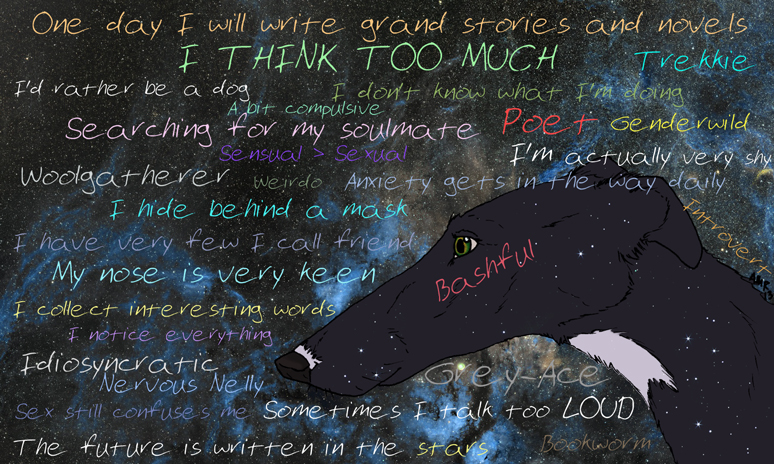 One day I will write grand stories and novels
I THINK TOO MUCH
Trekkie
I'd rather be a dog
I don't know what I'm doing
A bit compulsive
Searching for my soulmate
Poet
Genderwild
Sensual > Sexual
I'm actually very shy
Woolgatherer
Weirdo
Anxiety gets in the way daily
I hide behind a mask
Introvert
I have very few I call friend
Bashful
My nose is very keen
I collect interesting words
I notice everything
Idiosyncratic
Nervous Nelly
Grey-Ace
Sex still confuses me
Sometimes I talk too LOUD
The future is written in the stars
Bookworm